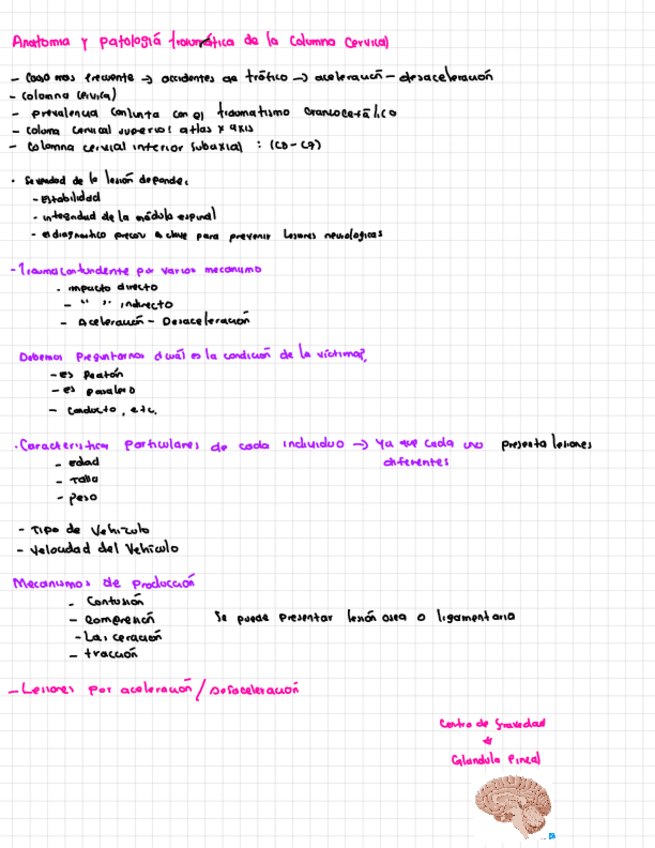 Anatomia y patologiá traumática de la columna cervical
- Caso mas frecuente → accidentes de tráfico → aceleración - desaceleración
- Columna cervical
- prevalencia conjunta con el traumatismo craneocefálico
- coluna cervical superior: atlas y axis
- Columna cervical inferior subaxial : (C3 - C7)
· Severidad de la lesión depende:
- Estabilidad
- integridad de la médula espinal
- el diagnostico precoz es clave para prevenir lesiones neurologicas
- Trauma contundente por varios mecanismo
- impacto directo
- " " indirecto
- Aceleración - Desaceleración
Debemos Preguntarnos ¿cuál es la condición de la víctima?,
- es Peatón
- es pasajero
- conducto, etc.
· Caracteristica particulares de cada individuo → Ya que cada uno presenta lesiones
diferentes
- edad
- Talla
- peso
- Tipo de Vehiculo
- Velocidad del Vehículo
Mecanismos de producción
- Contusión
- Compresión
Se puede presentar lesión osea o ligamentaria
- Laceración
- tracción
- Lesiones por aceleración / Desaceleración
Centro de Gravedad
Glandula Pineal